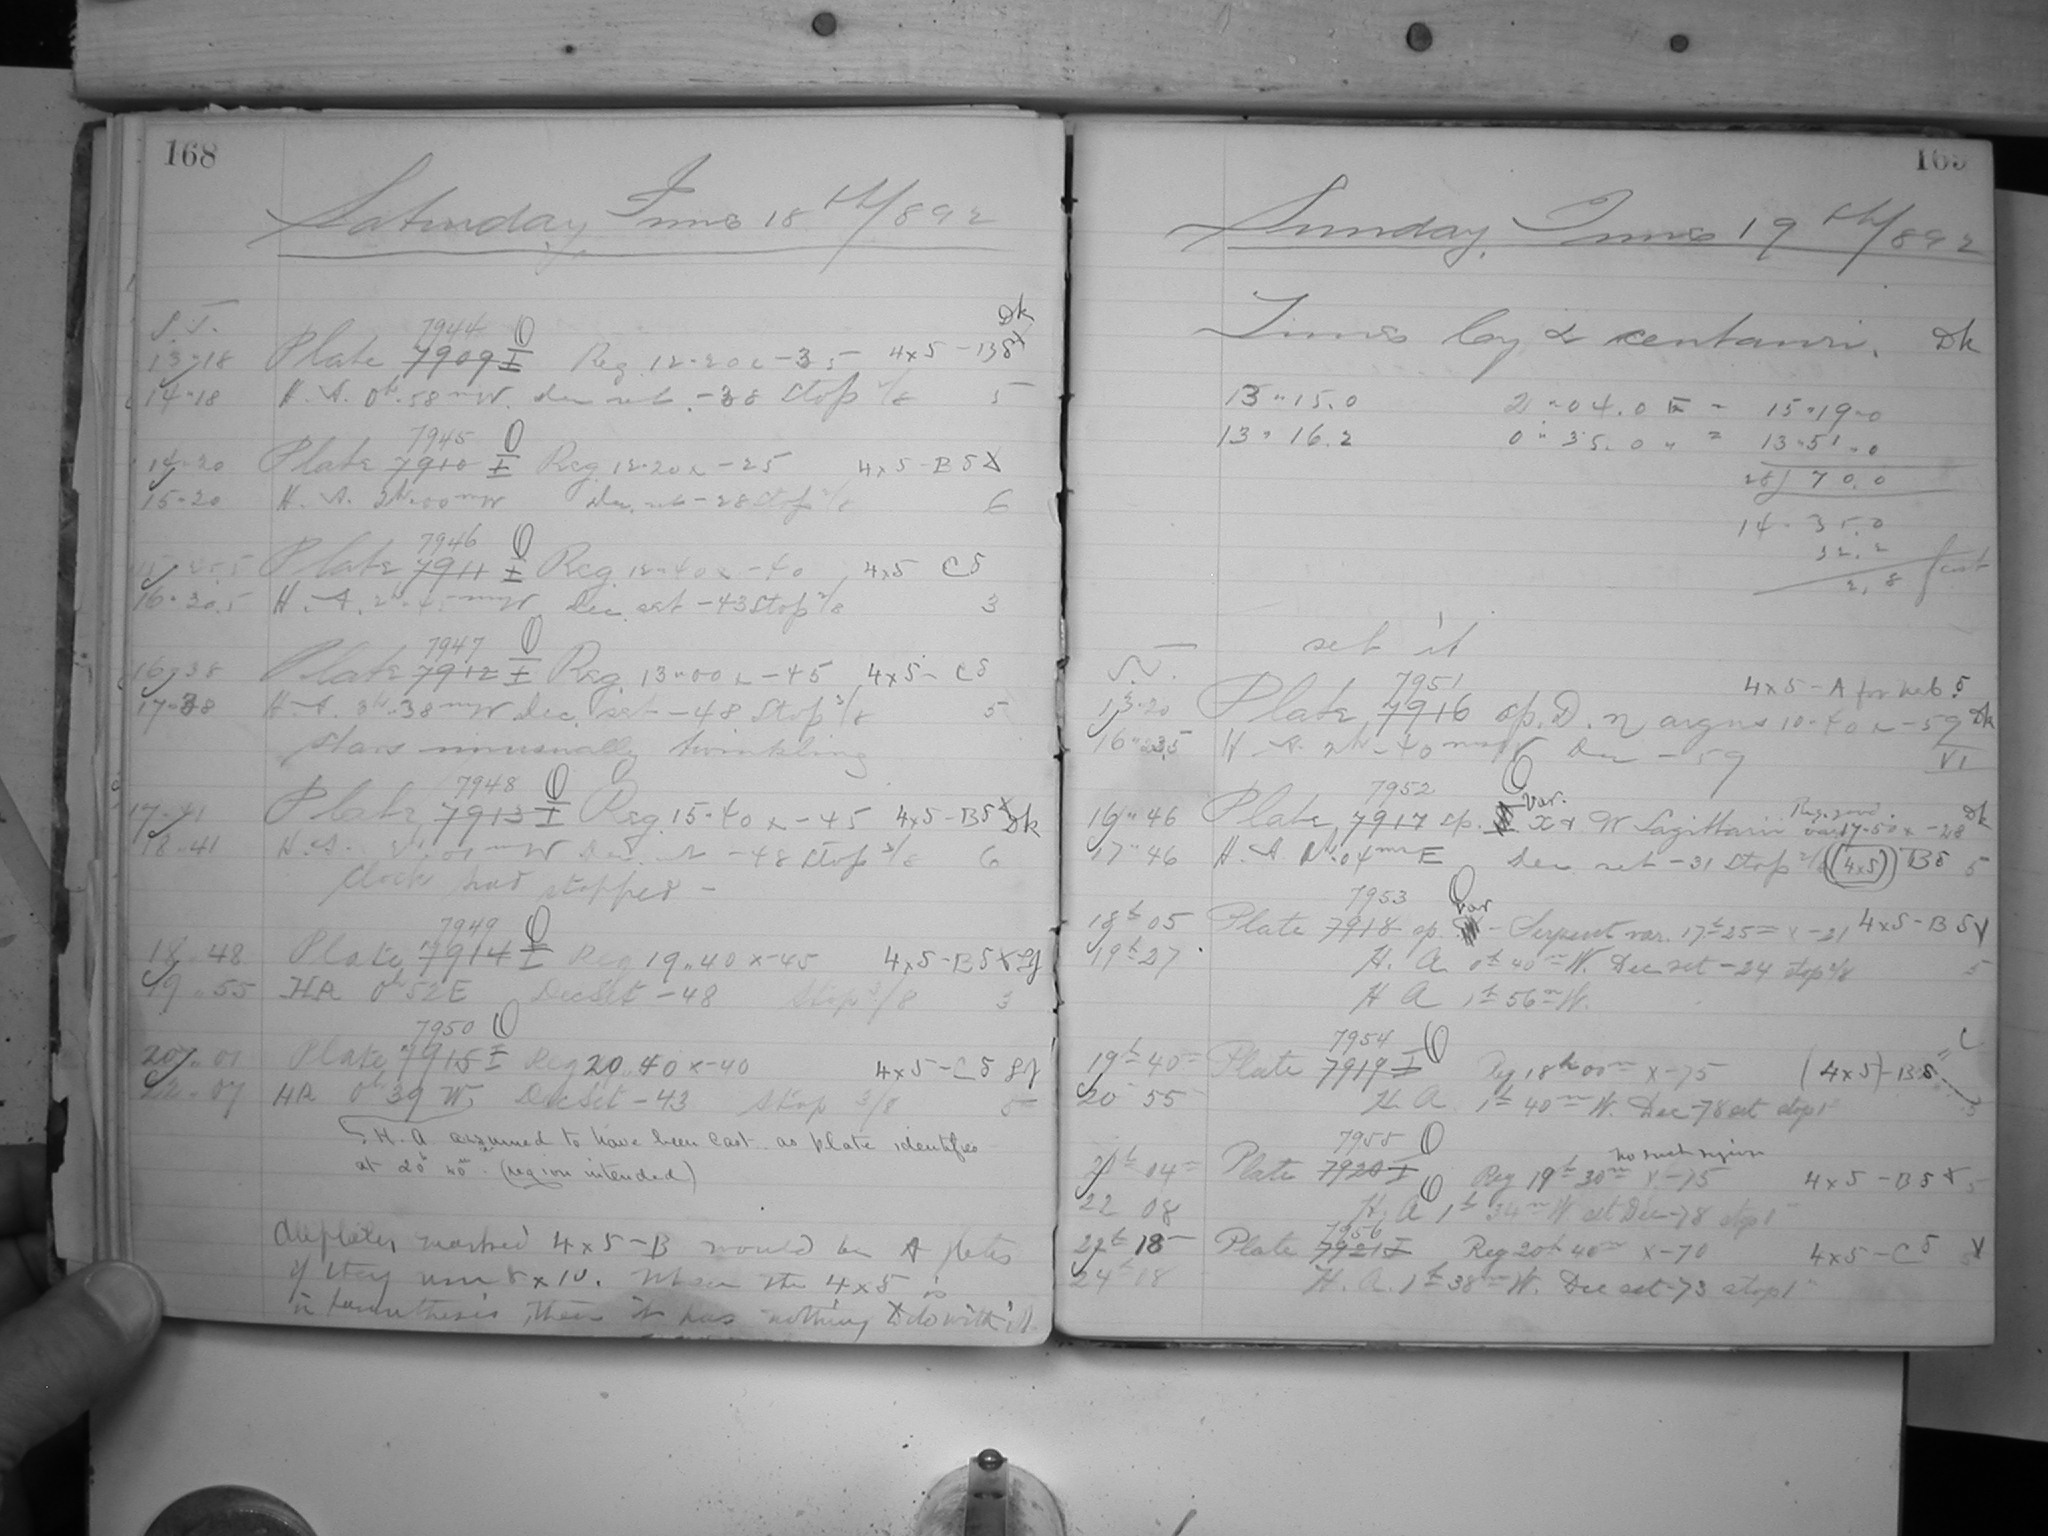 168
Saturday June 18th/892
S.T.
Dk
7944
13"18 Plate 7909 I Reg. 12-20 x -35 4x5-B5x
14"18 H.A. 0h.58mW. Dec set -38 Stop 3/8 5
7945
14"20 Plate 7910 I Reg. 12-20 x -25 4x5-B5X
15-20 H.A. 2h.00mW Dec. set -28 Stop 3/8 6
7946
Plate 7911 I Reg. 12-40 x -40 4x5 C5
16"20.5 H.A. Dec. set -43 Stop 3/8 3
7947
16"38 Plate 7912 I Reg. 13"00 x -45 4x5-C5
17"38 H.A. 3h.38mW Dec. set -48 Stop 3/8 5
Stars unusually twinkling
7948
17-41 Plate 7913 I Reg. 15-40 x -45 4x5-B5x Dk
18-41 H.A. 2h.01mW Dec. set -48 Stop 3/8 6
Clock had stopped -
7949
18"48 Plate 7914 I Reg 19"40 x-45 4x5-B5X
19"55 HA 0h52E Dec Set -48 Stop 3/8 3
7950
20"01 Plate 7915 I Reg 20"40 x-40 4x5-C5
22-07 HA 0h39W. Dec Set -43 Stop 3/8 5
H.A assumed to have been East as plate identifies
at 20h 40m. (region intended)
All plates marked 4x5-B would be A plates
if they were 8x10. When the 4x5 is
in parenthesis, then it has nothing to do with it.
169
Sunday, June 19th/892
Time by α Centauri. Dk
13"15.0 2"04.0 E = 15"19"0
13"16.2 0"35.0 " = 13"51"0
28) 70.0
14"35.0
32.2
2.8 fast
set it
S.T.
7951 4x5-A for neb 5
13-20 Plate 7916 sp. D. η argus 10-40 x -59 Dk
16"23.5 H.A. 2h-40mW Dec -59 VI
7952
16"46 Plate 7917 sp. var. X & W Sagittarii var 17-50 x -28 Dk
17"46 H.A. 04mE Dec set -31 Stop 3/8 (4x5) B5 5
7953
18h05 Plate 7918 sp. var - Serpent var. 17h25m x -21 4x5-B5X
19h27 H.A. 0h40mW. Dec set -24 stop 3/8 5
H A 1h56mW.
7954
19h40m Plate 7919 I Reg 18h00m x-75 (4x5)-B5 C
20 55 H.A 1h40mW. Dec -78 set stop 1" 3
7955 no such region
21h04m Plate 7920 I Reg 19h30m x-75 4x5-B5X 5
22 08 H.A 1h34mW set Dec -78 stop 1"
7956
22h18 Plate 7921 I Reg 20h40m x-70 4x5-C5
24h08 H.A. 1h38mW. Dec set -73 stop 1"